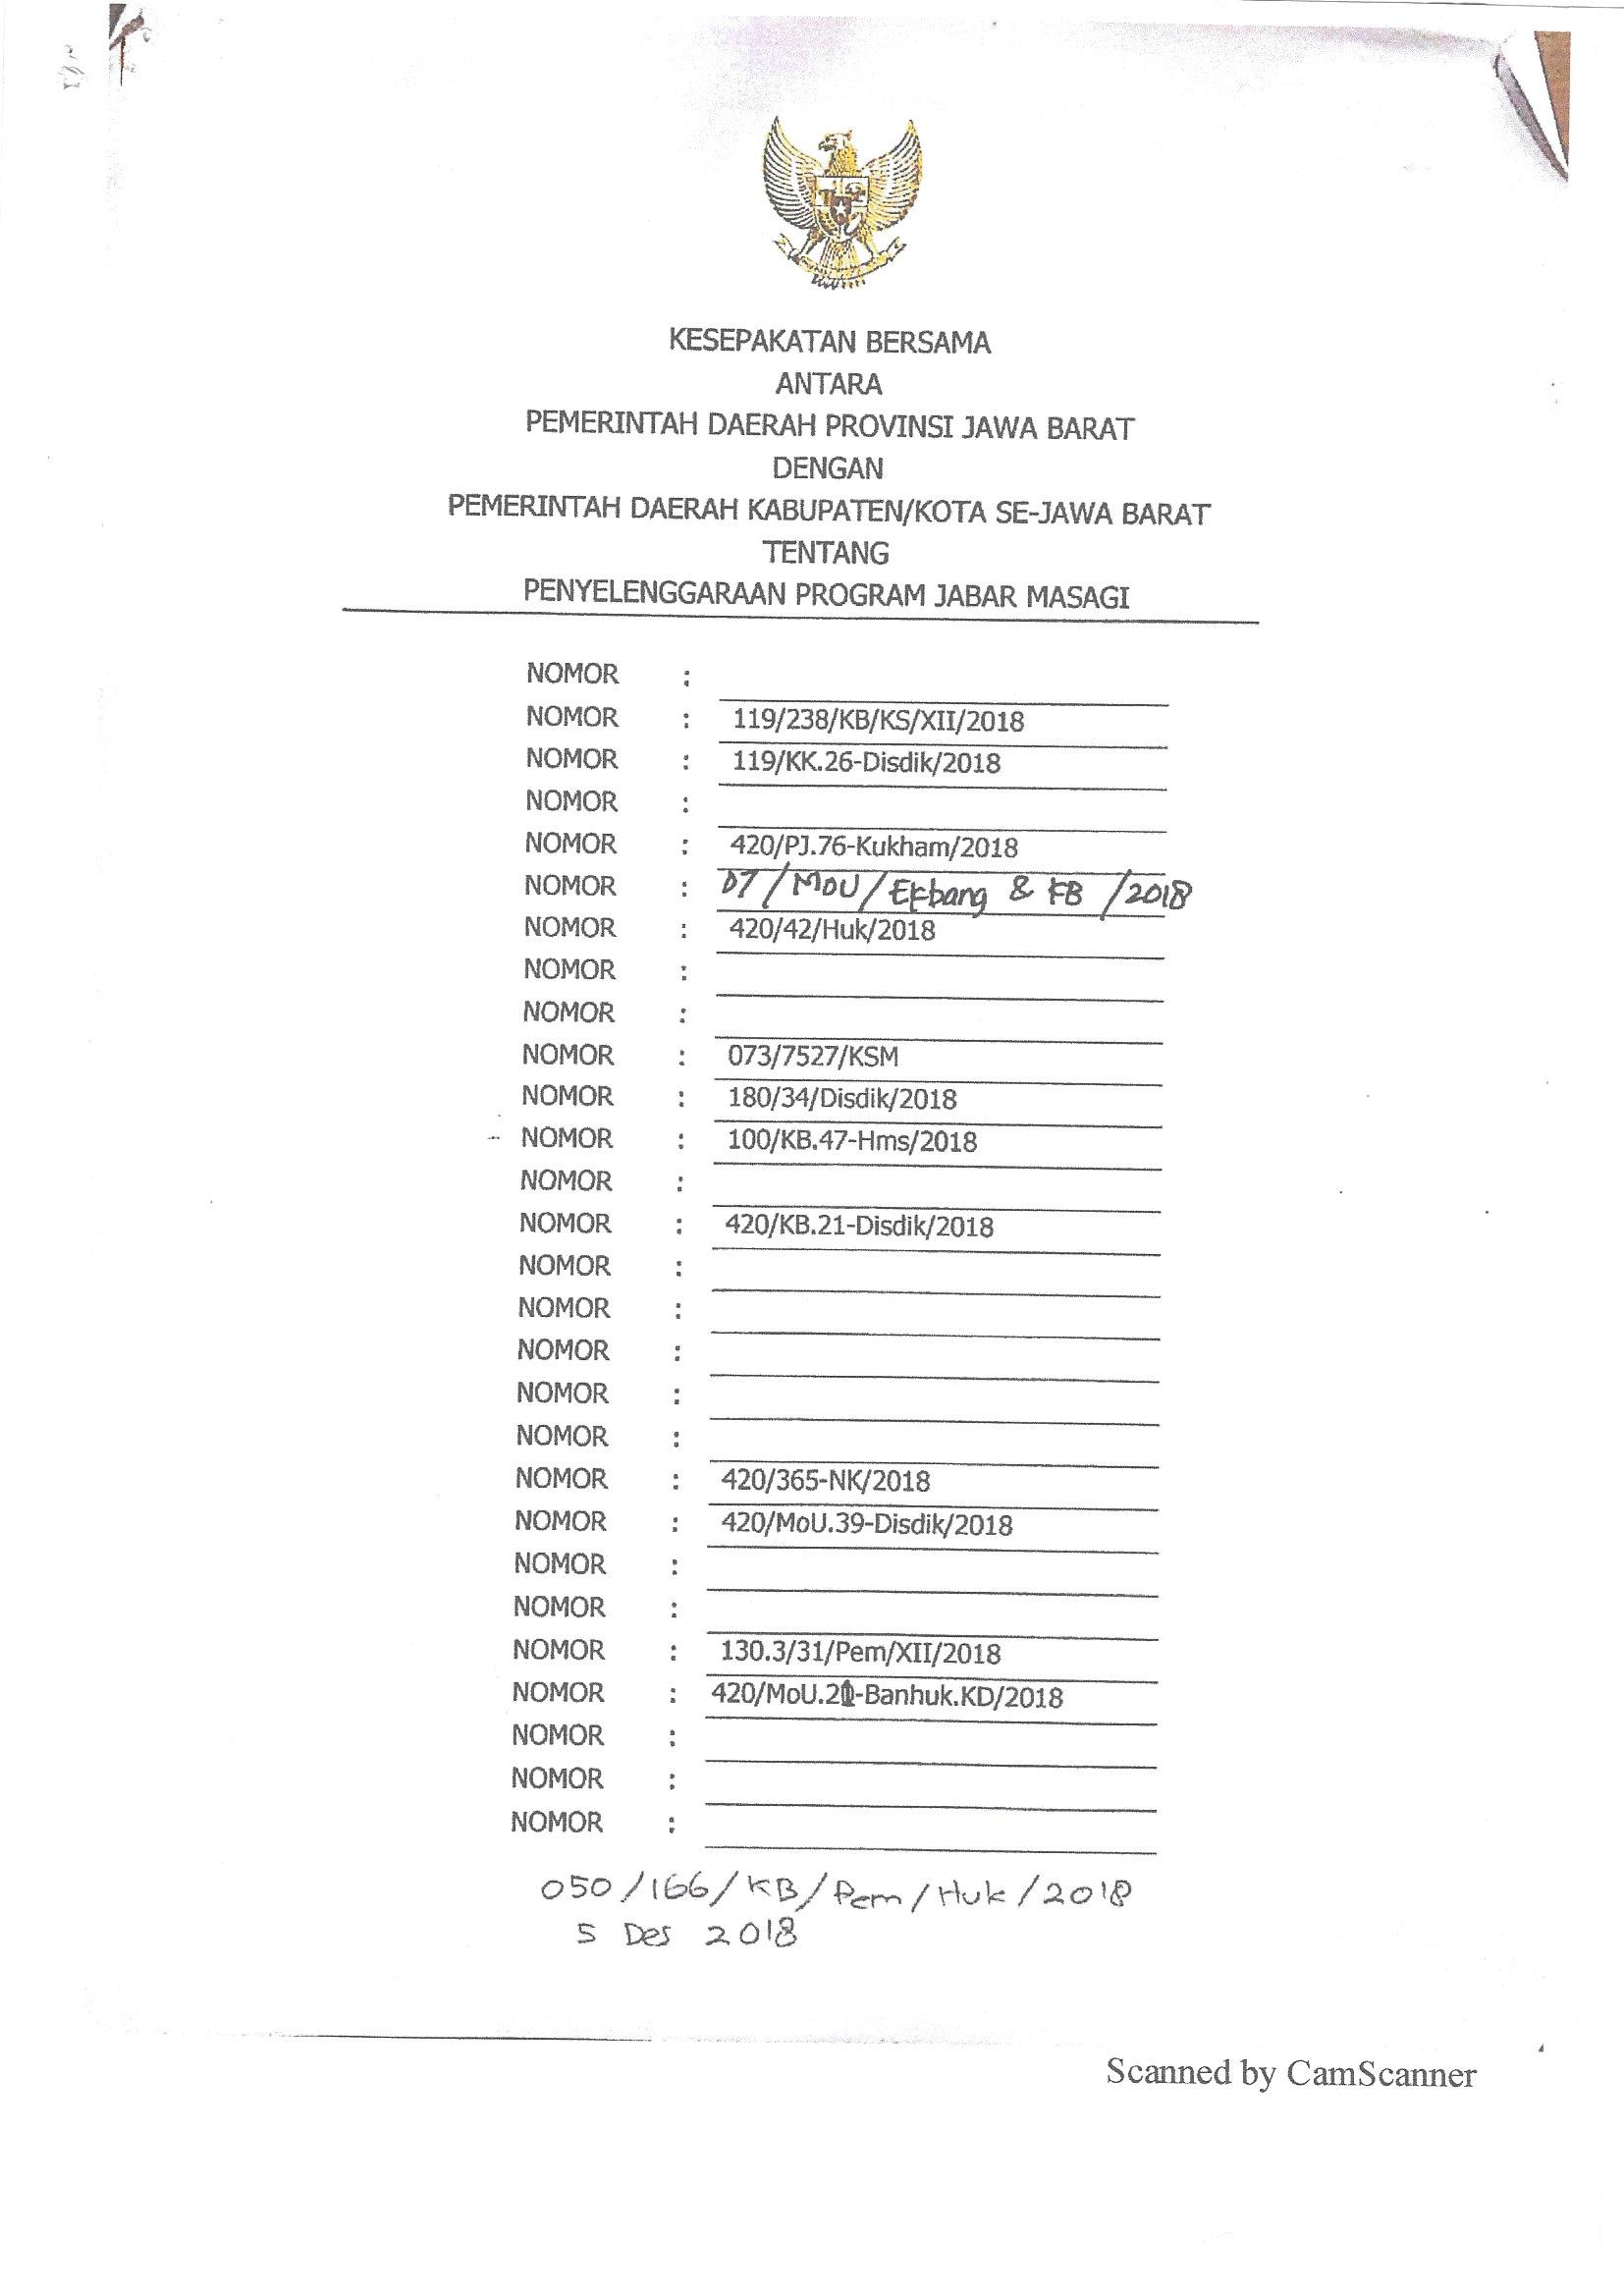 KESEPAKATAN BERSAMA
ANTARA
PEMERINTAH DAERAH PROVINSI JAWA BARAT
DENGAN
PEMERINTAH DAERAH KABUPATEN/KOTA SE-JAWA BARAT
TENTANG
PENYELENGGARAAN PROGRAM JABAR MASAGI
NOMOR :
NOMOR : 119/238/KB/KS/XII/2018
NOMOR : 119/KK.26-Disdik/2018
NOMOR :
NOMOR : 420/PJ.76-Kukham/2018
NOMOR : 07/MOU/Ekbang & KB /2018
NOMOR : 420/42/Huk/2018
NOMOR :
NOMOR :
NOMOR : 073/7527/KSM
NOMOR : 180/34/Disdik/2018
NOMOR : 100/KB.47-Hms/2018
NOMOR :
NOMOR : 420/KB.21-Disdik/2018
NOMOR :
NOMOR :
NOMOR :
NOMOR :
NOMOR :
NOMOR : 420/365-NK/2018
NOMOR : 420/MoU.39-Disdik/2018
NOMOR :
NOMOR :
NOMOR : 130.3/31/Pem/XII/2018
NOMOR : 420/MoU.21-Banhuk.KD/2018
NOMOR :
NOMOR :
NOMOR :
050/166/KB/Pem/Huk/2018
5 Des 2018
Scanned by CamScanner